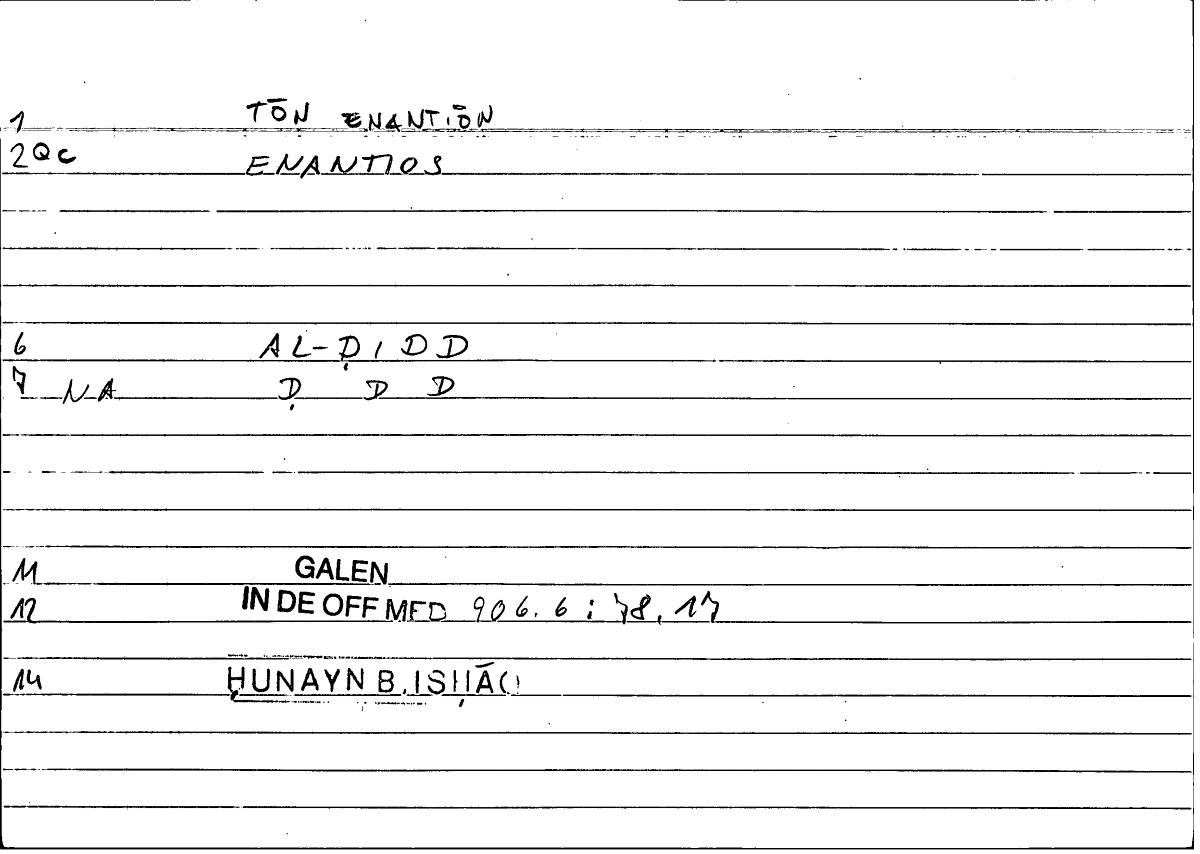 1 TŌN ENANTIŌN
2 Qc ENANTIOS
6 AL-ḌIDD
7 NA Ḍ D D
11 GALEN
12 IN DE OFF MED 906.6 : 78.17
14 ḤUNAYN B. ISḤĀQ